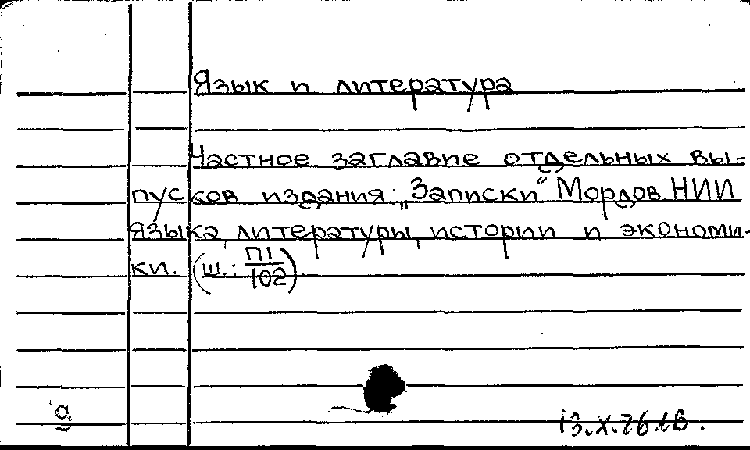 Язык и литература
Частное заглавие отдельных вы-
пусков издания: „Записки“ Мордов. НИИ
языка, литературы, истории и экономи-
ки. (ш.: П1/102)
а